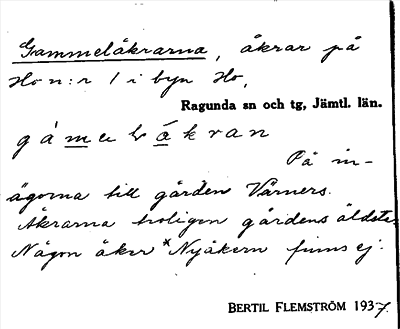 Gammelåkrarna, åkrar på
Ho n:r 1 i byn Ho,
Ragunda sn och tg, Jämtl. län.
På in-
ägorna till gården Värners.
Åkrarna troligen gårdens äldsta.
Någon åker *Nyåkern finns ej.
BERTIL FLEMSTRÖM 1937.